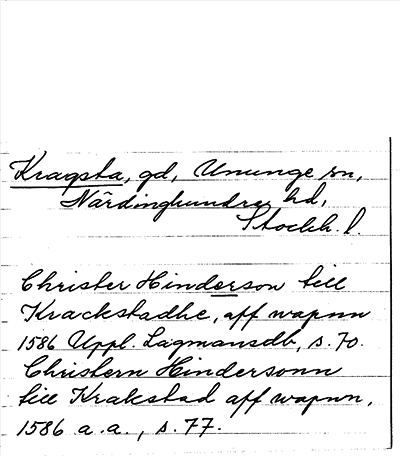 Kragsta, gd, Ununge sn,
Närdinghundra hd,
Stockh. l.
Christer Hinderson till
Krackstadhe, aff wapnn
1586 Uppl. Lagmansdb, s. 70.
Christern Hindersonn
till Krakstad aff wapnn,
1586 a. a., s. 77.